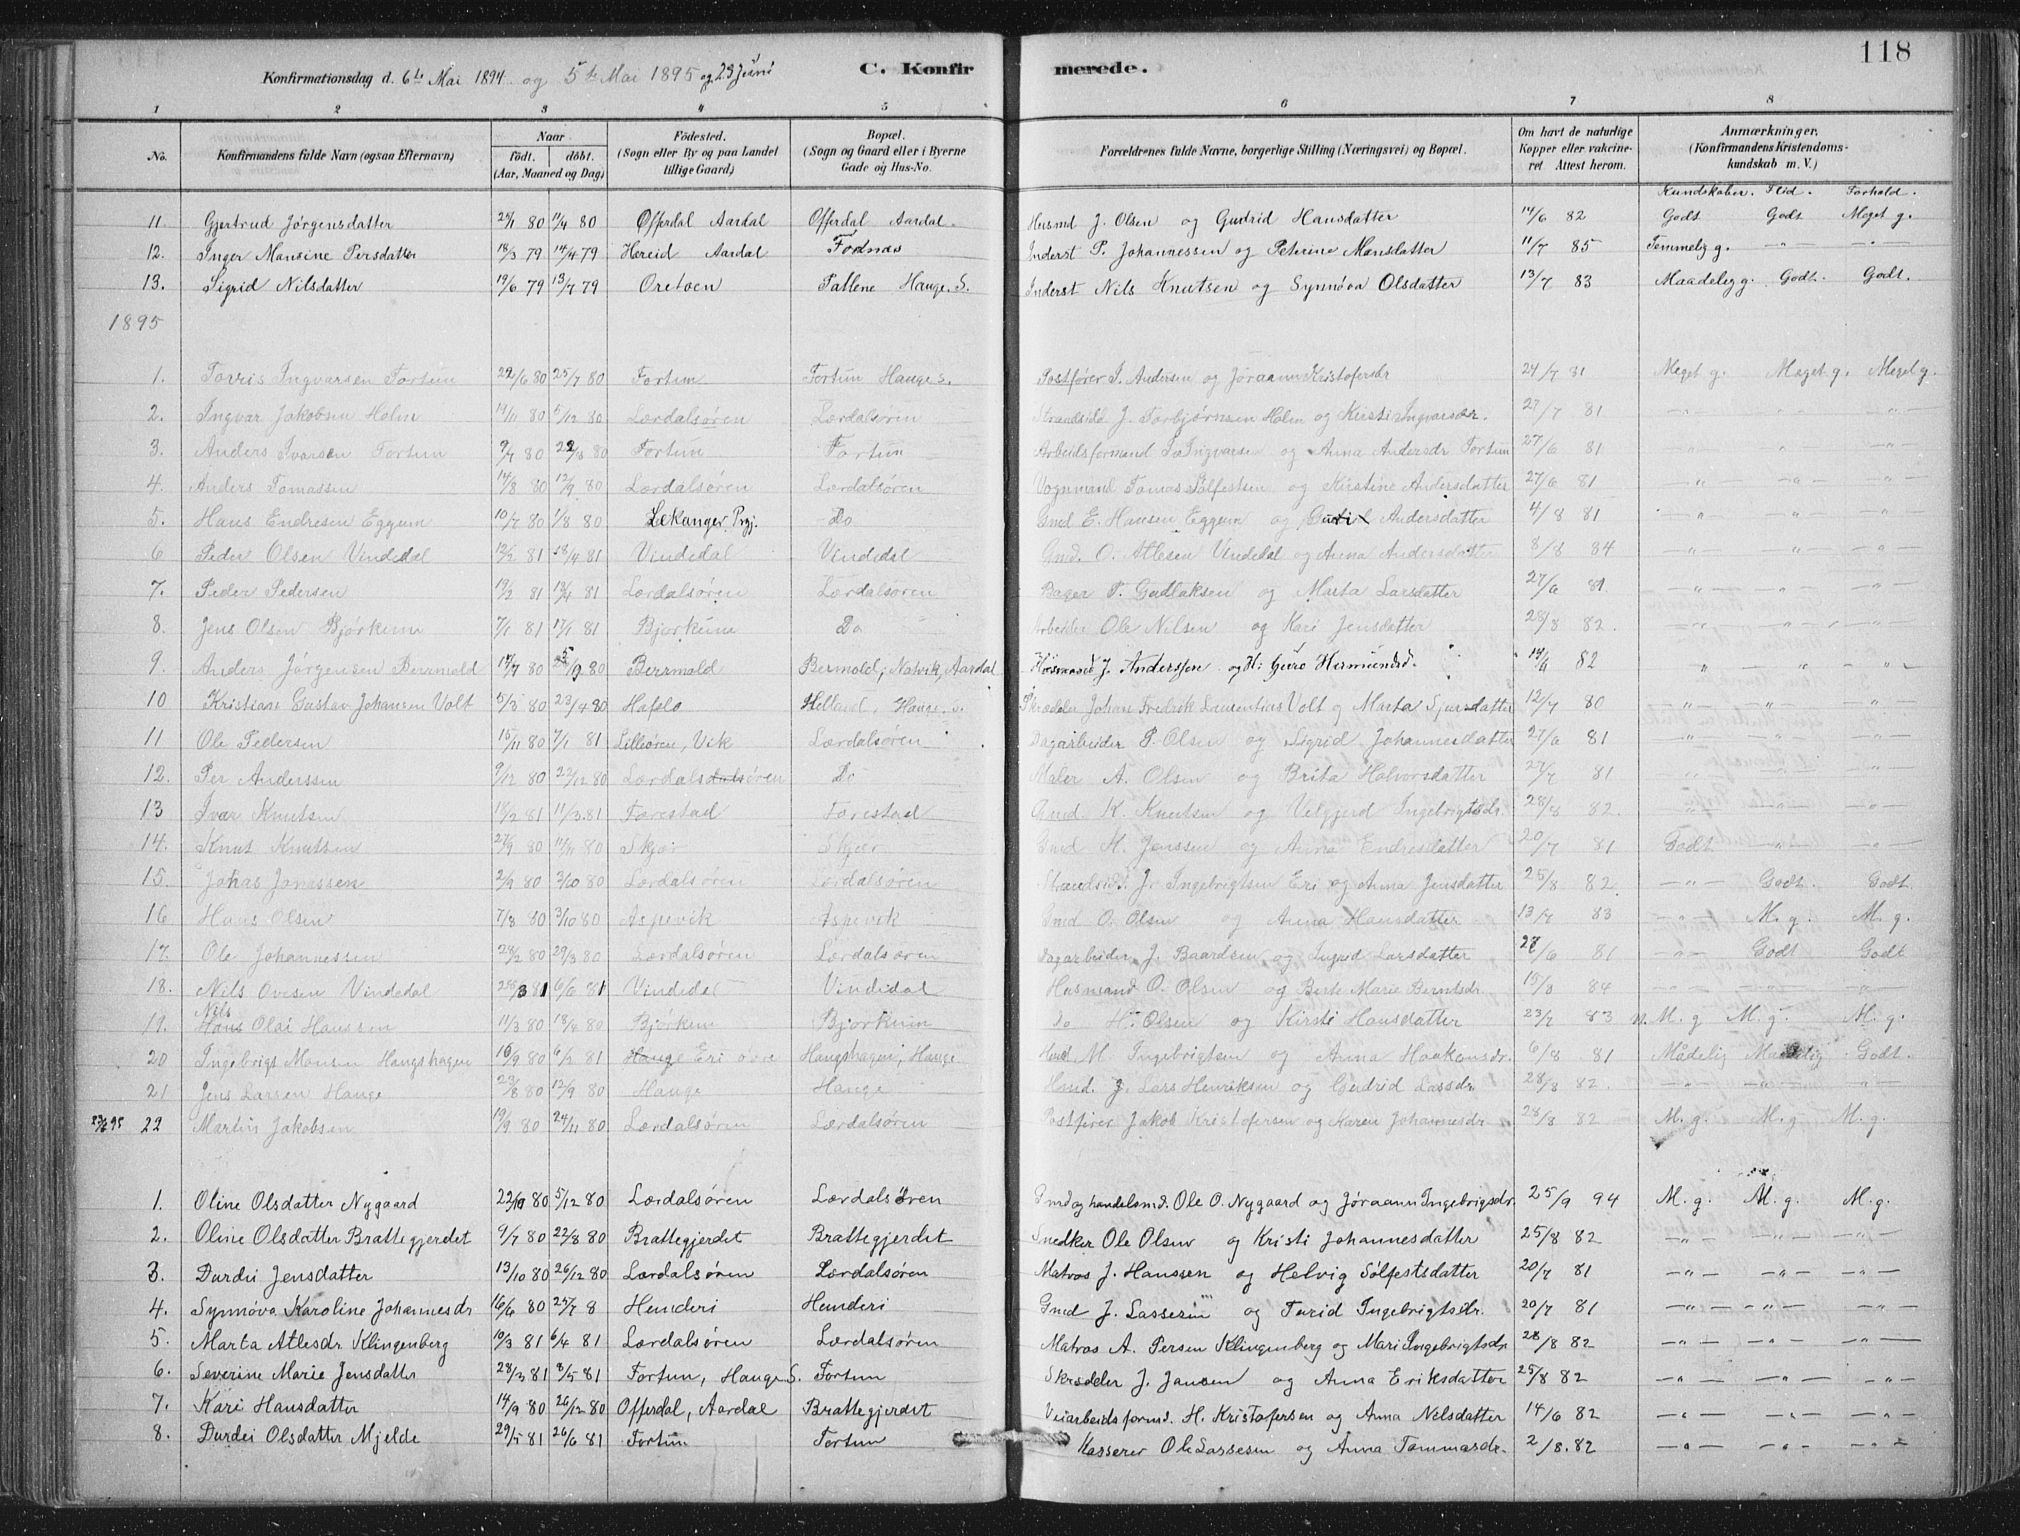 118
Konfirmationsdag d. 6te Mai 1894 og 5te Mai 1895 og 23 Juni C. Konfirmerede.
1 2 3 4 5 6 7 8
No. Konfirmandens fulde Navn (ogsaa Efternavn) Naar født. døbt. (Aar, Maaned og Dag) Fødested. (Sogn eller By og paa Landet tillige Gaard) Bopæl. (Sogn og Gaard eller i Byerne Gade og Hus-No. Forældrenes fulde Navne, borgerlige Stilling (Næringsvei) og Bopæl. Om havt de naturlige Kopper eller vakcineret Attest herom. Anmærkninger. (Konfirmandens Kristendomskundskab m. V.)
Kundskaber. Flid. Forhold.
11. Gjertrud Jørgensdatter 80 11/4 80 Offerdal Aardal Offerdal Aardal. Husmd J. Olsen og Gudrid Hansdatter 14/6 82 Godt Godt Meget g.
12. Inger Mansine Persdatter 18/3 79 14/4 79 Hereid Aardal Fodnæs Inderst P. Johannessen og Petrine Mansdatter 11/7 85 Temmelig g. — " — — " —
13. Sigrid Nilsdatter 19/6 79 13/7 79 Oretoen Fattene Hauge. S. Inderst Nils Knutsen og Synnøva Olsdatter 13/7 83 Maadelig g. Godt. Godt.
1895
1. Torris Ingvarsen Fortun 22/6 80 25/7 80 Fortun Fortun Hauge S. Postfører I. Andersen og Jøraann Kristofersdr 24/7 81 Meget g. Meget g. Meget g.
2. Ingvar Jakobsen Holm 19/11 80 5/12 80 Lærdalsøren Lærdalsøren Strandsidd J. Torbjørnsen Holm og Kristi Ingvarsdr. 27/7 81 — " — — " — — " —
3. Anders Ivarsen Fortun 9/7 80 22/8 80 Fortun Fortun Arbeidsformand I. Ingvarsen og Anna Andersdr Fortun 27/6 81 — " — — " — — " —
4. Anders Tomassen 14/8 80 12/9 80 Lærdalsøren Lærdalsøren Vognmand Tomas Sølfestsen og Kirstine Andersdatter 27/6 81 — " — — " — — " —
5. Hans Endresen Eggum 10/7 80 1/8 80 Lekanger Prgj. Do Gmd E. Hansen Eggum og Andersdatter 4/8 81 — " — — " — — " —
6 Peder Olsen Vindedal 12/2 81 18/4 81 Vindedal Vindedal Gmd. O. Atlesen Vindedal og Anna Andersdatter 8/8 84 — " — — " — — " —
7. Peder Pedersen 19/2 81 19/4 81 Lærdalsøren Lærdalsøren Bager P. Gudlaksen og Marta Larsdatter 27/6 81 — " — — " — — " —
8. Jens Olsen Bjørkum 7/1 81 17/1 81 Bjørkum Do Arbeider Ole Nilsen og Kari Jensdatter 28/8 82. — " — — " — — " —
9. Anders Jørgensen Berrmold 14/7 80 80 Berrmold Bermold, Natvik, Aardal Husmand J. Anderssen og H. Guro Hermundsd. 14/6 82 — " — — " — — " —
10 Kristian Gustav Johansen Volt 5/3 80 23/4 80 Hafslo Helland, Hauge. s. Skrædder Johan Fredrik Laurentius Volt og Marta Sjursdatter 12/7 80 — " — — " — — " —
11 Ole Pedersen 15/11 80 7/1 81 Lilleøren, Vik Lærdalsøren Dagarbeider P. Olsen og Sigrid Johannesdatter 27/6 81 — " — — " — — " —
12. Per Anderssen 9/12 80 22/12 80 Lærdalsøren Do Maler A. Olsen og Brita Halvorsdatter 27/7 81 — " — — " — — " —
13 Ivar Knutsen 18/2 81 11/3.81 Færestad Færestad Gmd. K. Knutsen og Velgjerd Ingebrigtsdr. 28/8 82. — " — — " — — " —
14. Knut Knutsen 27/9 80 80 Skjær Skjær Gmd K. Jenssen og Anna Endresdatter 20/7 81 Godt — " — — " —
15. Johas Jonassen 2/9 80 3/10 80 Lærdalsøren Lærdalsøren Strandsidd. J. Ingebrigtsen Eri og Anna Jensdatter 25/8 82. — " — Godt. Godt.
16 Hans Olsen 7/8 80 3/10 80 Aspevik Aspevik Gmd O. Olsen og Anna Hansdatter 13/7 83 — " — M. g. M. g.
17. Ole Johannessen 28/2 80 29/3 80 Lærdalsøren Lærdalsøren Dagarbeider J. Baardsen og Ingrid Larsdatter 27/6 81 — " — Godt Godt
18. Nils Ovesen Vindedal 28/3 81 6/6 81 Vindedal Vindedal Husmand O. Olsen og Berte Marie Berntsdr. 15/8 84 — " — — " — — " —
19. Nils Olai Hanssen 11/3 80 18/4 80 Bjørkum Bjørkum Do H. Olsen og Kirsti Hansdatter 23/7 83 M. g M. g. M. g.
20 Ingebrigt Monsen Haugshagen 16/9 80 6/2 81 Eri øvre Haugshagen, Hauge Hmd M. Ingebrigtsen og Anna Haakonsdr. 6/8 81 Mådelig Maadelig Godt.
21 Jens Larsen Hauge 22/8 80 12/9 80 Hauge Hauge Hmd. Lars Henriksen og Gudrid Larsdr. 28/8 82. — " — — " — — " —
23/6 95 22 Martin Jakobsen 19/9 80 24/11 80 Lærdalsøren Lærdalsøren Postfører Jakob Kristofersen og Karen Johannesdr 28/8 82 M. g. M. g. M. g.
1. Oline Olsdatter Nygaard 22/10 80 5/12 80 Lærdalsøren Lærdalsøren Gmd og handelsmd. Ole O. Nygaard og Jøraann Ingebrigsdr. 25/9 94 M. g. M. g. M. g.
2. Oline Olsdatter Brattegjerdet 9/7 80 22/8 80 Brattegjerdet Brattegjerdet Snedker Ole Olsen og Kristi Johannesdatter 25/8 82 — " — — " — — " —
3. Durdei Jensdatter 13/10 80 26/12 80 Lærdalsøren Lærdalsøren Matros J. Hanssen og Helvig Sølfestsdatter 20/7 81 — " — — " — — " —
4. Synnøva Karoline Johannesdr 16/6 80 25/7 8 Henderi Henderi Gmd J. Lassesen og Turid Ingebrigtsdr. 20/7 81 — " — — " — — " —
5. Marta Atlesdr Klingenberg 10/3 81 6/4 81 Lærdalsøren Lærdalsøren Matros A. Persen Klingenberg og Mari Ingebrigtsdr 28/8 82 — " — — " — — " —
6. Severine Marie Jensdatter 28/3 81 8/5 81 Fortun, Hauge S. Fortun Skrædder J. Jansen og Anna Eriksdatter 25/8 82 — " — — " — — " —
7. Kari Hansdatter 14/9 80 26/12 80 Offerdal, Aardal Brattegjerdet Veiarbeidsformd. H. Kristofersen og Anna Nelsdatter 14/6 82 — " — — " — — " —
8. Durdei Olsdatter Mjelde 29/5 81 26/6 81 Fortun Fortun Kasserer Ole Lassesen og Anna Tommasdr. 2/8.82 — " — — " — — " —